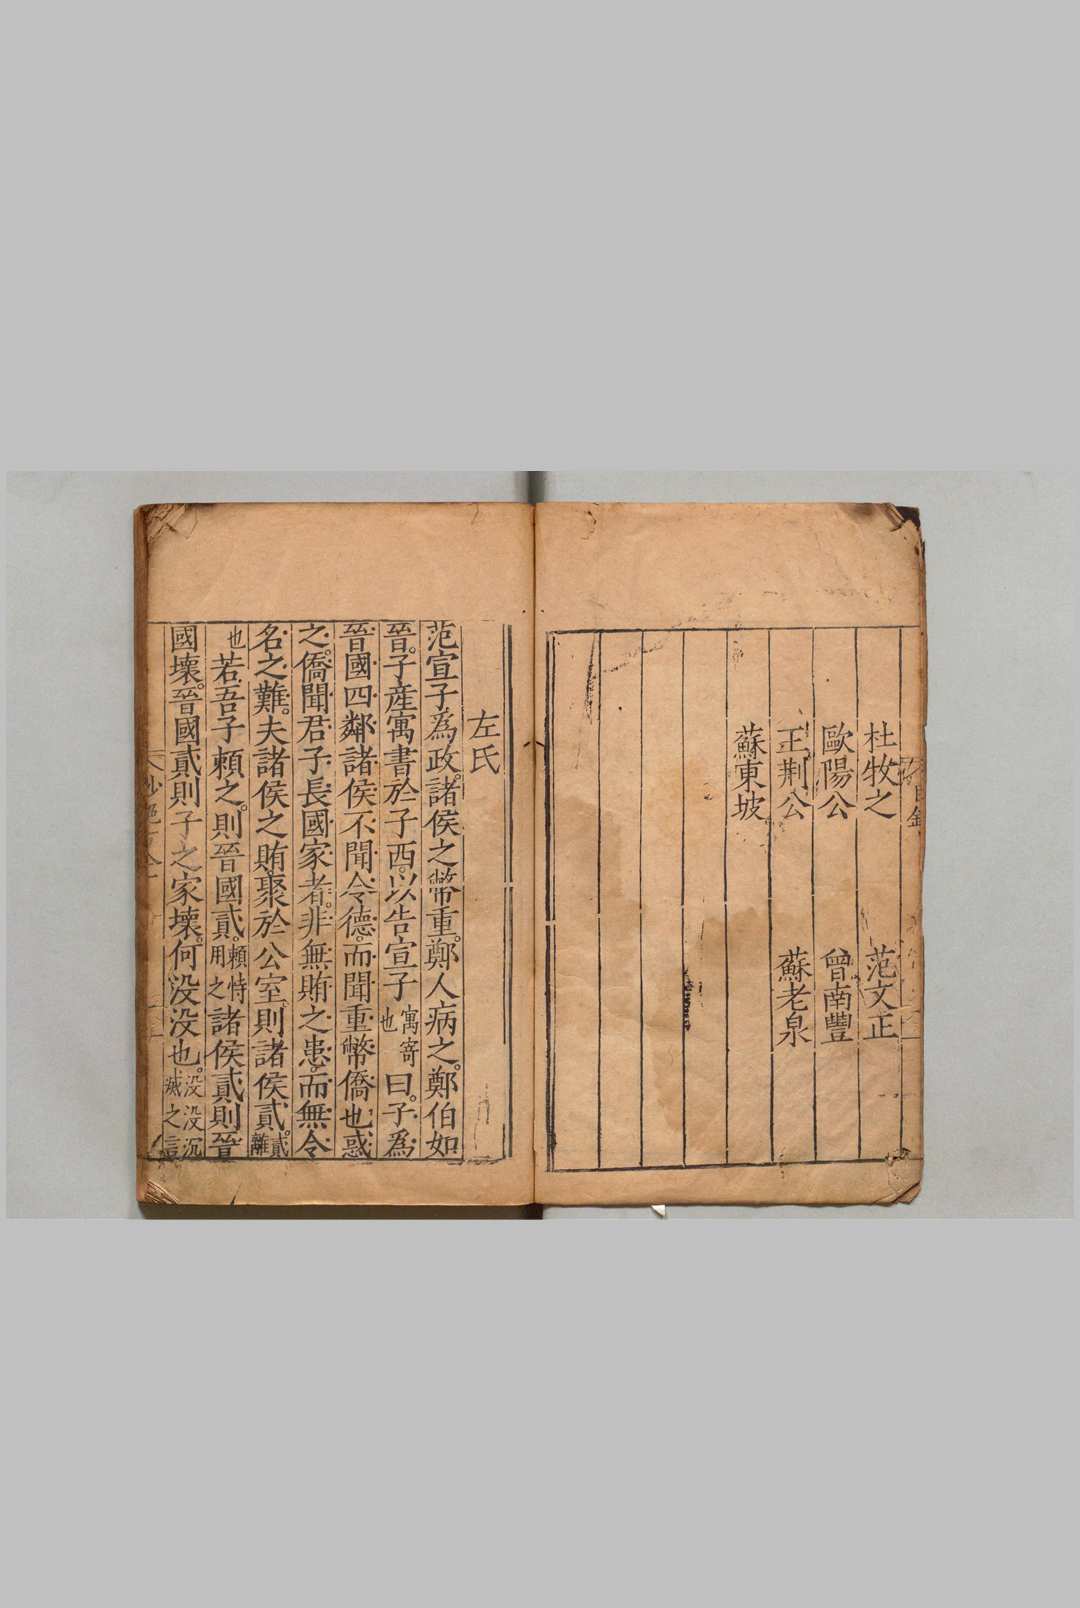 目錄
杜牧之 范文正
歐陽公 曾南豐
王荆公 蘇老泉
蘇東坡
左氏
范宣子為政。諸侯之幣重。鄭人病之。鄭伯如
晉。子產寓書於子西。以告宣子寓寄也曰。子為
晉國。四鄰諸侯。不聞令德。而聞重幣。僑也惑
之。僑聞君子長國家者。非無賄之患。而無令
名之難。夫諸侯之賄。聚於公室。則諸侯貳。貳離
也若吾子賴之。則晉國貳。賴恃用之諸侯貳則晉
國壞。晉國貳則子之家壞。何没没也。没没沉滅之言